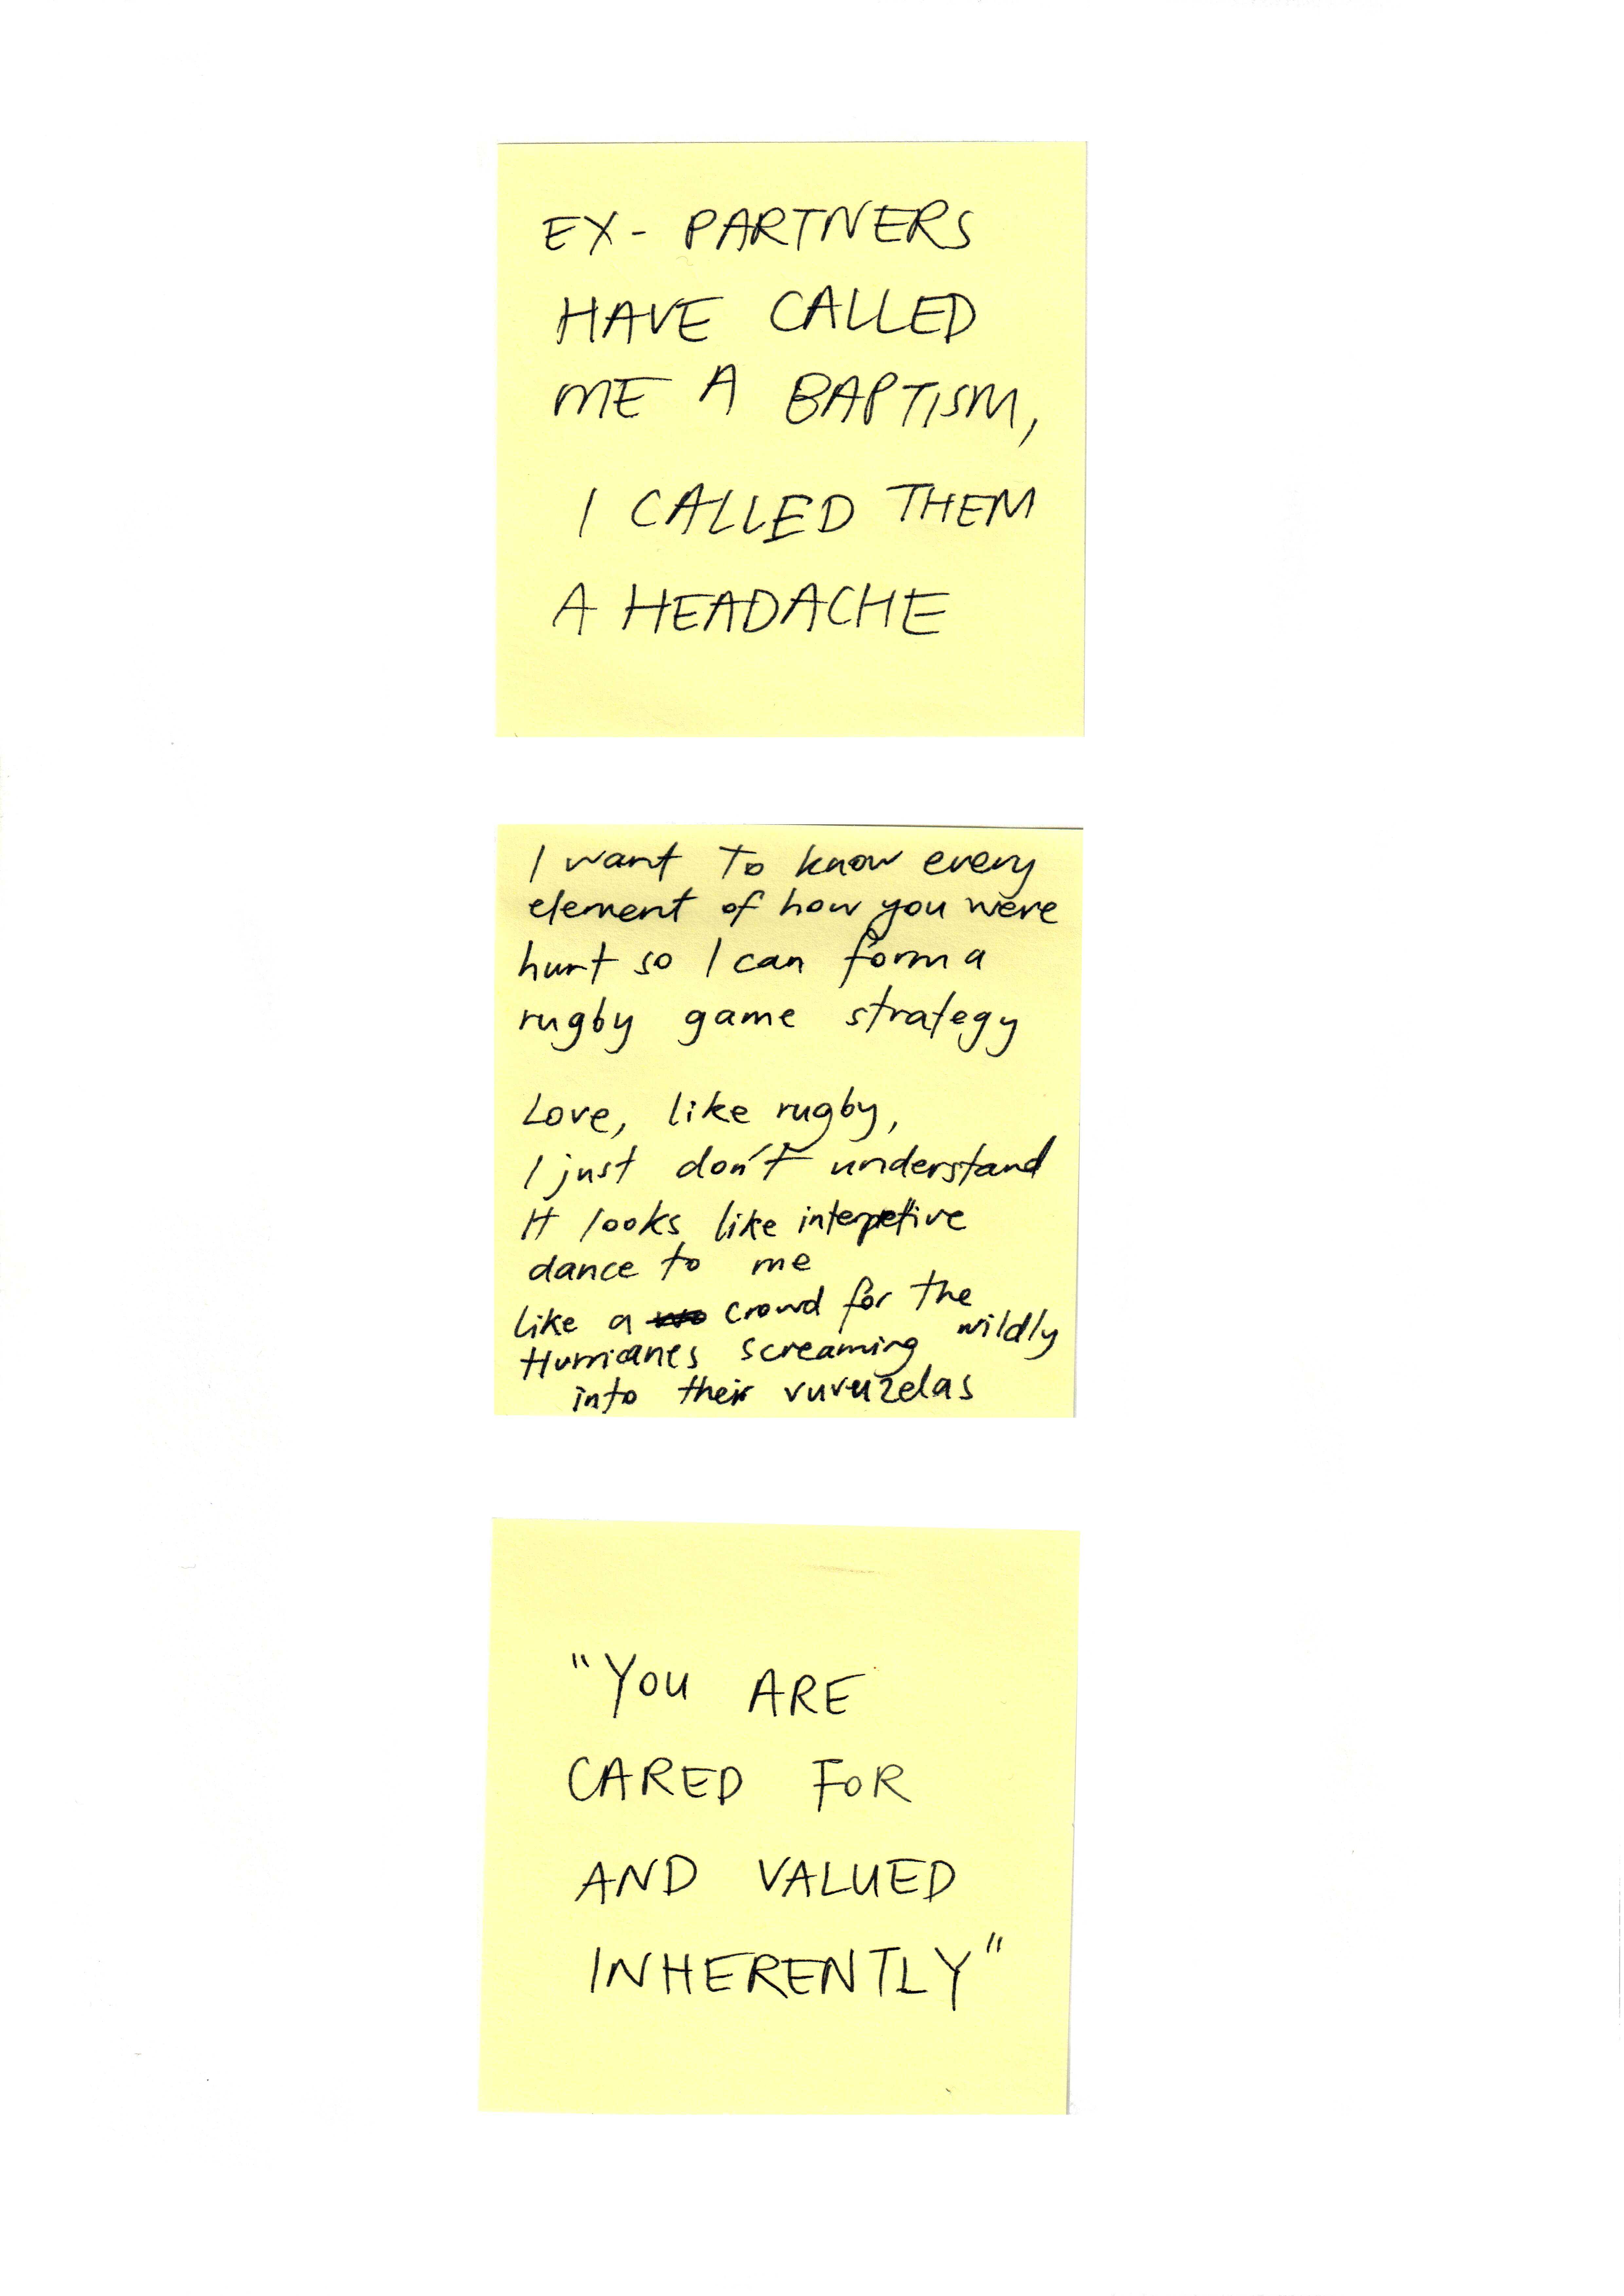 EX- PARTNERS
HAVE CALLED
ME A BAPTISM,
I CALLED THEM
A HEADACHE
I want to know every
element of how you were
hurt so I can form a
rugby game strategy
Love, like rugby,
I just don't understand
It looks like interpetive
dance to me
like a crowd for the
Hurricanes screaming wildly
into their vuvuzelas
"YOU ARE
CARED FOR
AND VALUED
INHERENTLY"